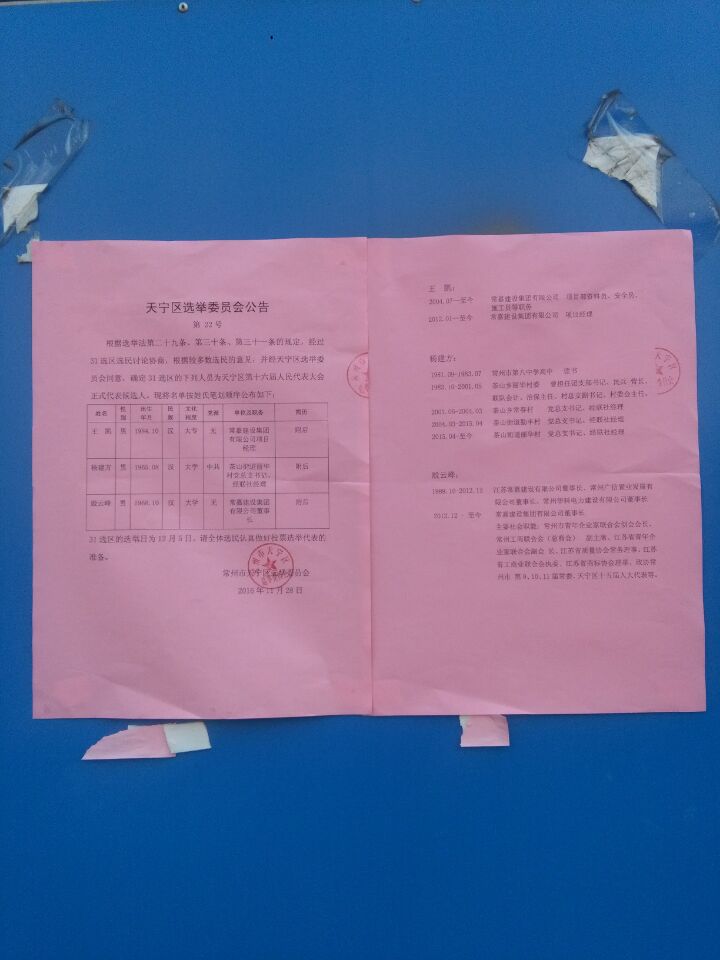 天宁区选举委员会公告
第 22号
根据选举法第二十九条、第三十条、第三十一条的规定，经过
31选区选民讨论协商，根据较多数选民的意见，并经天宁区选举委
员会同意，确定31选区的下列人员为天宁区第十六届人民代表大会
正式代表候选人。现将名单按姓氏笔划顺序公布如下：
姓名 性别 出生年月 民族 文化程度 党派 单位及职务 简历
王 凯 男 1984.10 汉 大专 无 常嘉建设集团有限公司项目经理 附后
杨建方 男 1965.08 汉 大学 中共 茶山街道丽华村党总支书记、经联社经理 附后
殷云峰 男 1968.10 汉 大学 无 常嘉建设集团有限公司董事长 附后
31选区的选举日为12月5日。请全体选民认真做好投票选举代表的
准备。
常州市天宁区选举委员会
2016年11月28日
王 凯：
2004.07—至今 常嘉建设集团有限公司 项目部资料员、安全员、
施工员等职务
2012.01—至今 常嘉建设集团有限公司 项目经理
杨建方：
1981.09-1983.07 常州市第八中学高中 读书
1983.10-2001.05 茶山乡丽华村委 曾担任团支部书记、民兵 营长、
联队会计、治保主任、村总支副书记、村委会主任、
2001.05-2004.03 茶山乡常春村 党总支书记、经联社经理
2004.03-2015.04 茶山街道勤丰村 党总支书记、经联社经理
2015.04-至今 茶山街道丽华村 党总支书记、经联社经理
殷云峰：
1989.10-2012.12 江苏常嘉建设有限公司董事长、常州广信置业发展有
限公司董事长、常州华科电力建设有限公司董事长
2012.12 - 至今 常嘉建设集团有限公司董事长
主要社会职能：常州市青年企业家联合会创会会长、
常州工商联合会（总商会） 副主席、江苏省青年企
业家联合会副会 长、江苏省质量协会常务理事、江苏
省工商业联合会执委、江苏省商标协会理事、政协常
州市 第9,10,11届常委、天宁区十五届人大代表等。